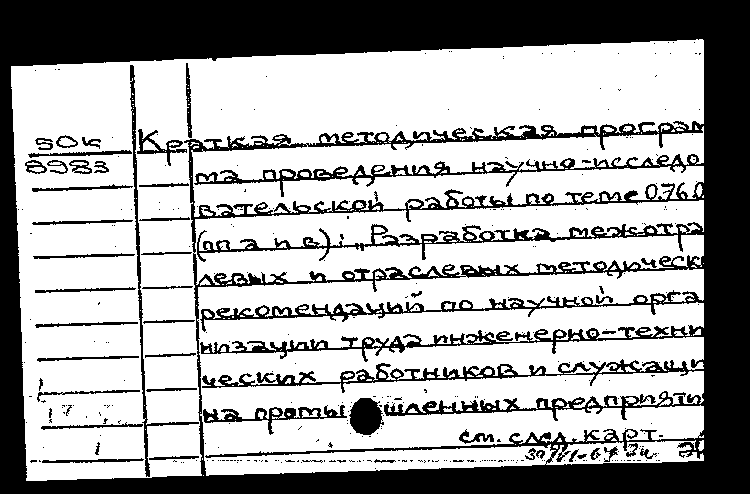 30к Краткая методическая програм
8983
ма проведения научно-исследо
вательской работы по теме 0.76.0
(пп а и в): „Разработка межотра
левых и отраслевых методически
рекомендаций по научной орга
низации труда инженерно-техни
ческих работников и служащи
на промышленных предприяти
см. след. карт.